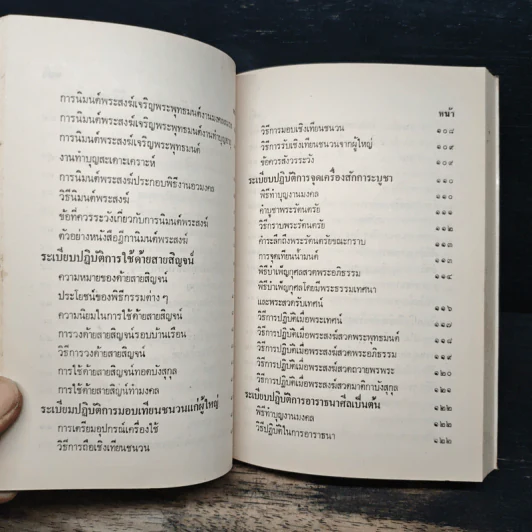 การนิมนต์พระสงฆ์เจริญพระพุทธมนต์งานมงคล
การนิมนต์พระสงฆ์เจริญพระพุทธมนต์งานทำบุญอายุ
การนิมนต์พระสงฆ์เจริญพระพุทธมนต์
งานทำบุญสะเดาะเคราะห์
การนิมนต์พระสงฆ์ประกอบพิธีงานอวมงคล
วิธีนิมนต์พระสงฆ์
ข้อที่ควรระวังเกี่ยวกับการนิมนต์พระสงฆ์
ตัวอย่างหนังสือฎีกานิมนต์พระสงฆ์
ระเบียบปฏิบัติการใช้ด้ายสายสิญจน์
ความหมายของด้ายสายสิญจน์
ประโยชน์ของพิธีกรรมต่าง ๆ
ความนิยมในการใช้ด้ายสายสิญจน์
การวงด้ายสายสิญจน์รอบบ้านเรือน
วิธีการวงด้ายสายสิญจน์
การใช้ด้ายสายสิญจน์ทอดบังสุกุล
การใช้ด้ายสายสิญจน์ทำมงคล
ระเบียบปฏิบัติการมอบเทียนชนวนแก่ผู้ใหญ่
การเตรียมอุปกรณ์เครื่องใช้
วิธีการถือเชิงเทียนชนวน
หน้า
วิธีการมอบเชิงเทียนชนวน ๑๐๘
วิธีการรับเชิงเทียนชนวนจากผู้ใหญ่ ๑๐๙
ข้อควรสังวรระวัง ๑๐๙
ระเบียบปฏิบัติการจุดเครื่องสักการะบูชา ๑๑๐
พิธีทำบุญงานมงคล ๑๑๐
คำบูชาพระรัตนตรัย ๑๑๑
วิธีกราบพระรัตนตรัย ๑๑๒
คำระลึกถึงพระรัตนตรัยขณะกราบ ๑๑๓
การจุดเทียนน้ำมนต์ ๑๑๓
พิธีบำเพ็ญกุศลสวดพระอภิธรรม ๑๑๔
พิธีบำเพ็ญกุศลโดยมีพระธรรมเทศนา
และพระสวดรับเทศน์ ๑๑๖
วิธีการปฏิบัติเมื่อพระเทศน์ ๑๑๗
วิธีการปฏิบัติเมื่อพระสงฆ์สวดพระพุทธมนต์ ๑๑๘
วิธีการปฏิบัติเมื่อพระสงฆ์สวดพระอภิธรรม ๑๑๙
วิธีการปฏิบัติเมื่อพระสงฆ์สวดถวายพรพระ ๑๒๐
วิธีการปฏิบัติเมื่อพระสงฆ์สวดมาติกาบังสุกุล ๑๒๑
ระเบียบปฏิบัติการอาราธนาศีลเป็นต้น ๑๒๒
พิธีทำบุญงานมงคล ๑๒๒
วิธีปฏิบัติในการอาราธนา ๑๒๒